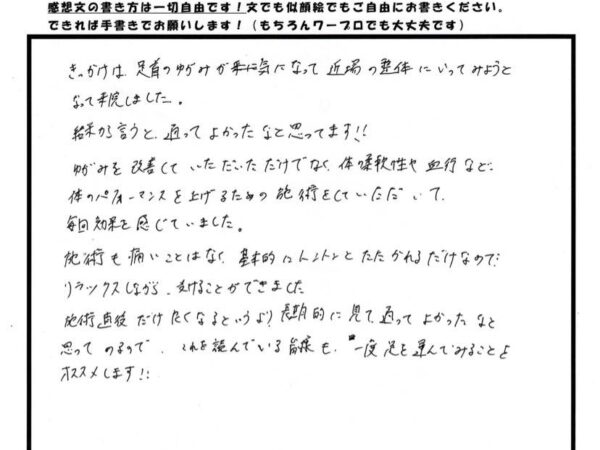 感想文の書き方は一切自由です！文でも似顔絵でもご自由にお書きください。
できれば手書きでお願いします！（もちろんワープロでも大丈夫です）
きっかけは、足首のゆがみが気になって近場の整体にいってみようと
なって来院しました。
結果から言うと、通ってよかったなと思ってます!!
ゆがみを改善していただいただけでなく、体の柔軟性や血行など、
体のパフォーマンスを上げるための施術をしていただいて、
毎回効果を感じていました。
施術も痛いことはなく、基本的にトントンとたたかれるだけなので、
リラックスしながら、受けることができました
施術直後だけ良くなるというより、長期的に見て、通ってよかったなと
思っているので、これを読んでいる皆様も、一度足を運んでみることを
オススメします!!